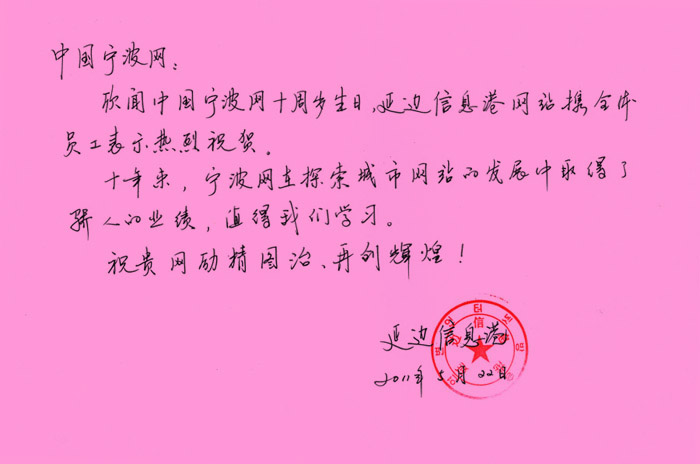 中国宁波网：
欣闻中国宁波网十周岁生日，延边信息港网站携全体
员工表示热烈祝贺。
十年来，宁波网在探索城市网站的发展中取得了
骄人的业绩，值得我们学习。
祝贵网励精图治、再创辉煌！
延边信息港
2011年5月22日